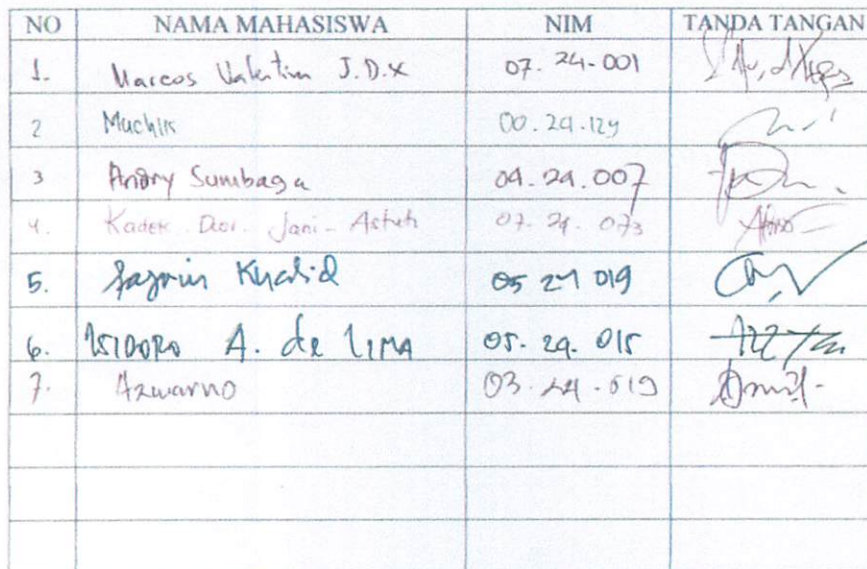 NO NAMA MAHASISWA NIM TANDA TANGAN
1. Marcos Valentim J.D.X 07. 24-001
2 Muchlis 00.24.129
3 Andry Sumbaga 04.24.007
4. Kadek Jani-Astuti 07.24.073
5. Khalid 05 24 019
6. ISIDORO A. de LIMA 05.24.015
7. Azwarno 03.24.019